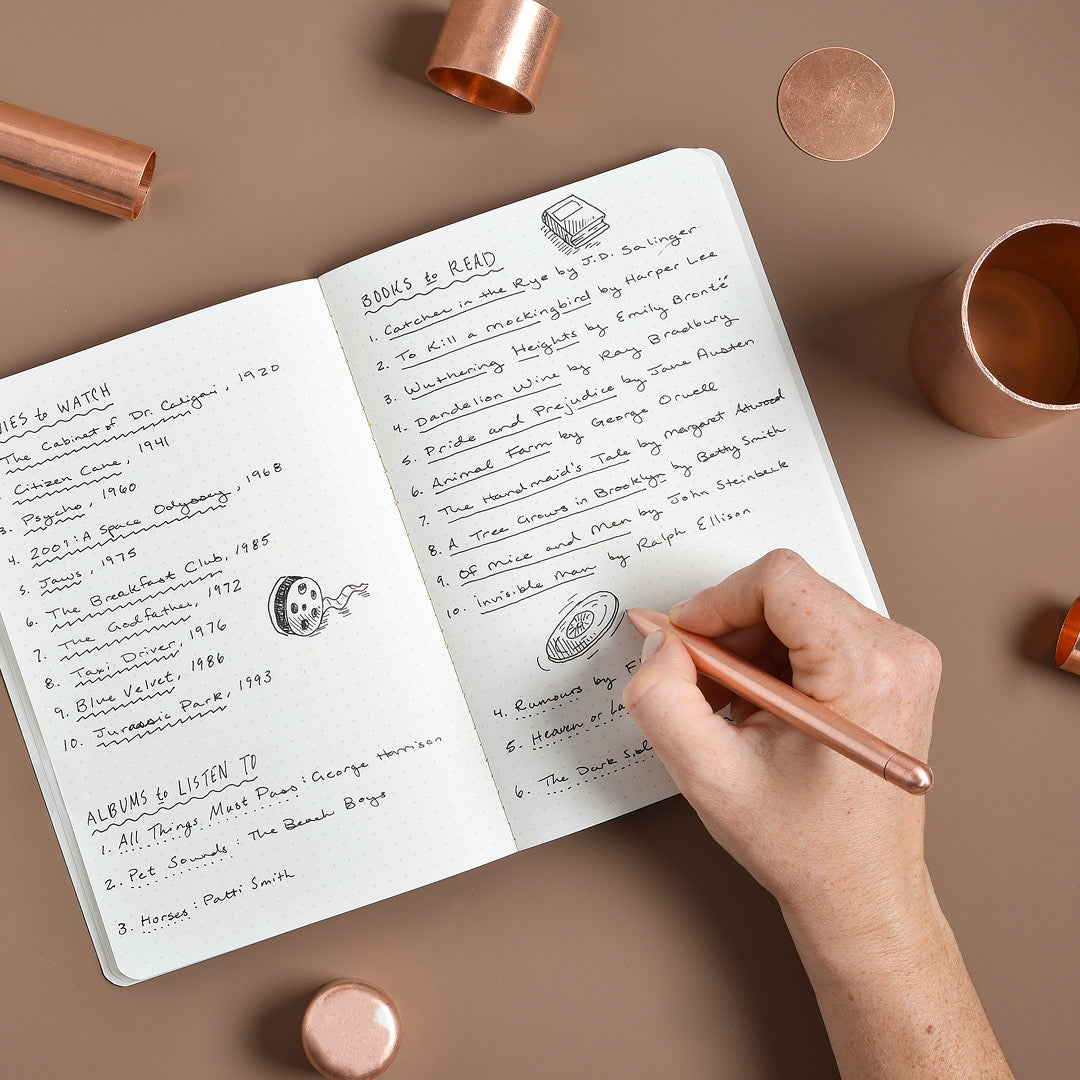 VIES to WATCH
The Cabinet of Dr. Caligari, 1920
Citizen Cane, 1941
3. Psycho, 1960
4. 2001: A Space Odyssey, 1968
5. Jaws, 1975
6. The Breakfast Club, 1985
7. The Godfather, 1972
8. Taxi Driver, 1976
9. Blue Velvet, 1986
10. Jurassic Park, 1993
ALBUMS to LISTEN TO
1. All Things Must Pass: George Harrison
2. Pet Sounds: The Beach Boys
3. Horses: Patti Smith
BOOKS to READ
1. Catcher in the Rye by J.D. Salinger
2. To Kill a Mockingbird by Harper Lee
3. Wuthering Heights by Emily Brontë
4. Dandelion Wine by Ray Bradbury
5. Pride and Prejudice by Jane Austen
6. Animal Farm by George Orwell
7. The Handmaid's Tale by Margaret Atwood
8. A Tree Grows in Brooklyn by Betty Smith
9. Of Mice and Men by John Steinbeck
10. Invisible Man by Ralph Ellison
4. Rumours by Fl
5. Heaven or La
6. The Dark Sid